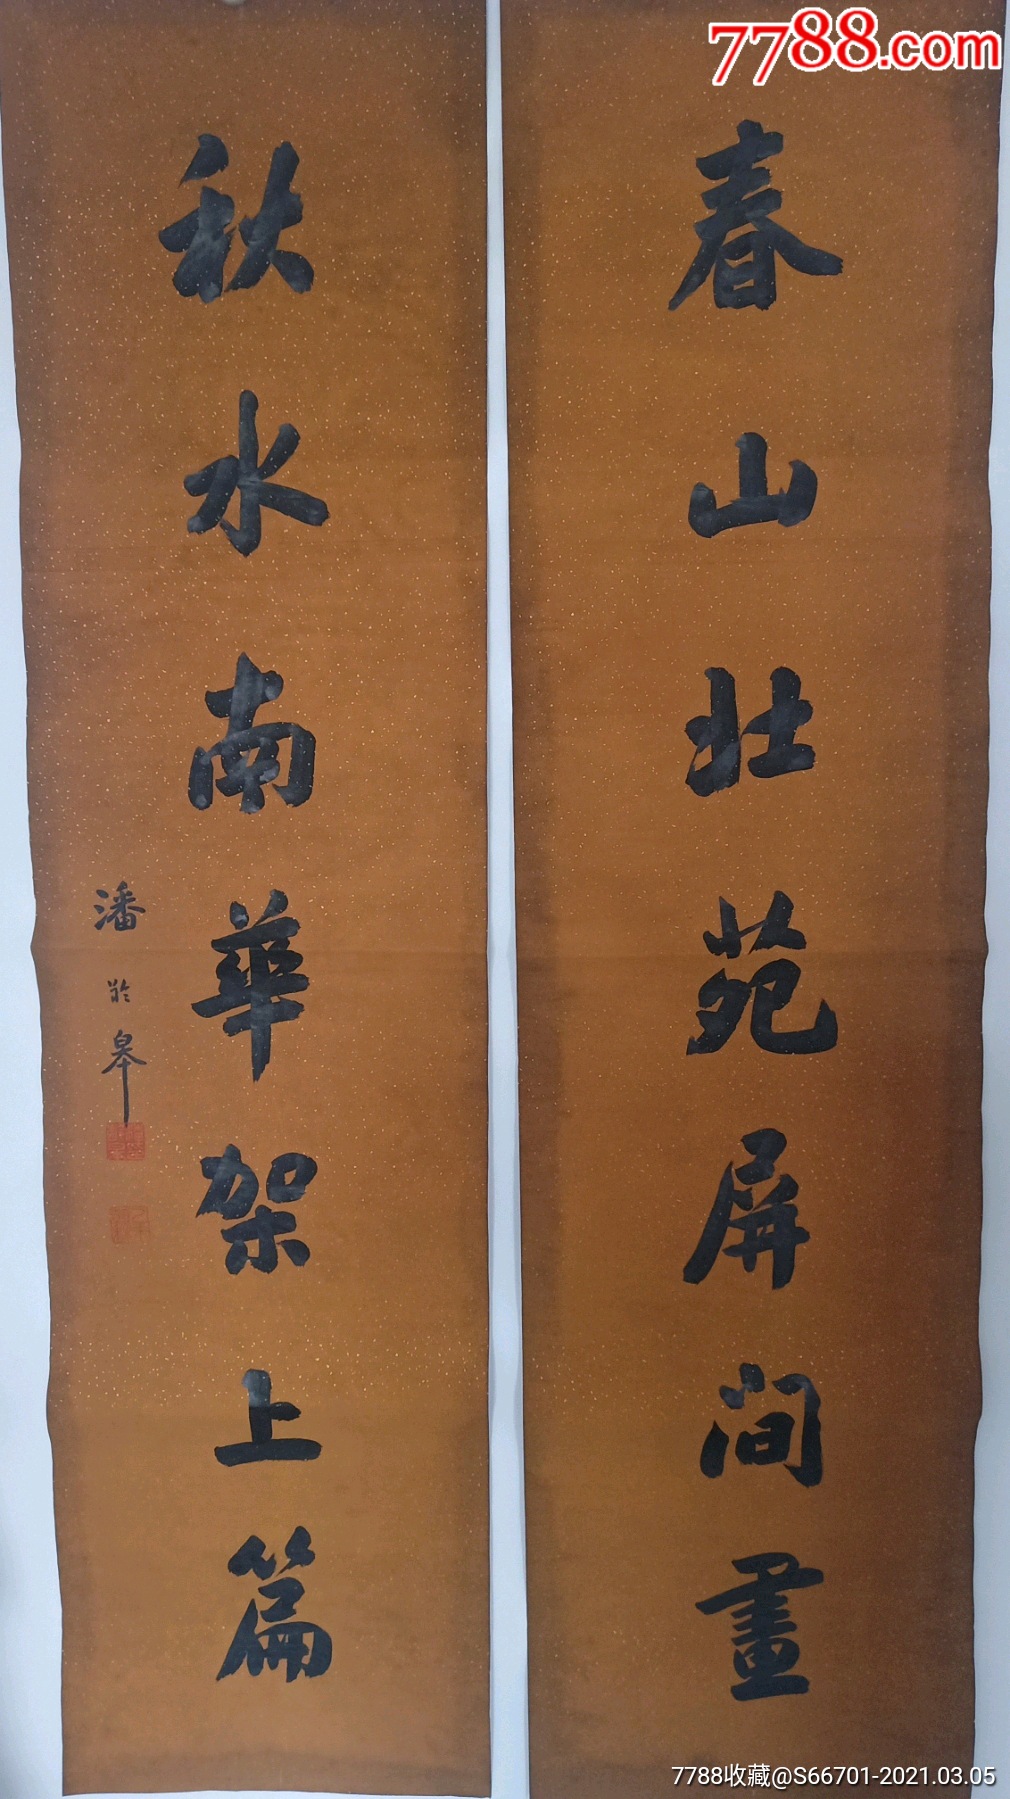 7788.com
春山北苑屏间畫
秋水南華架上篇
潘齡皋
7788收藏@S66701-2021.03.05